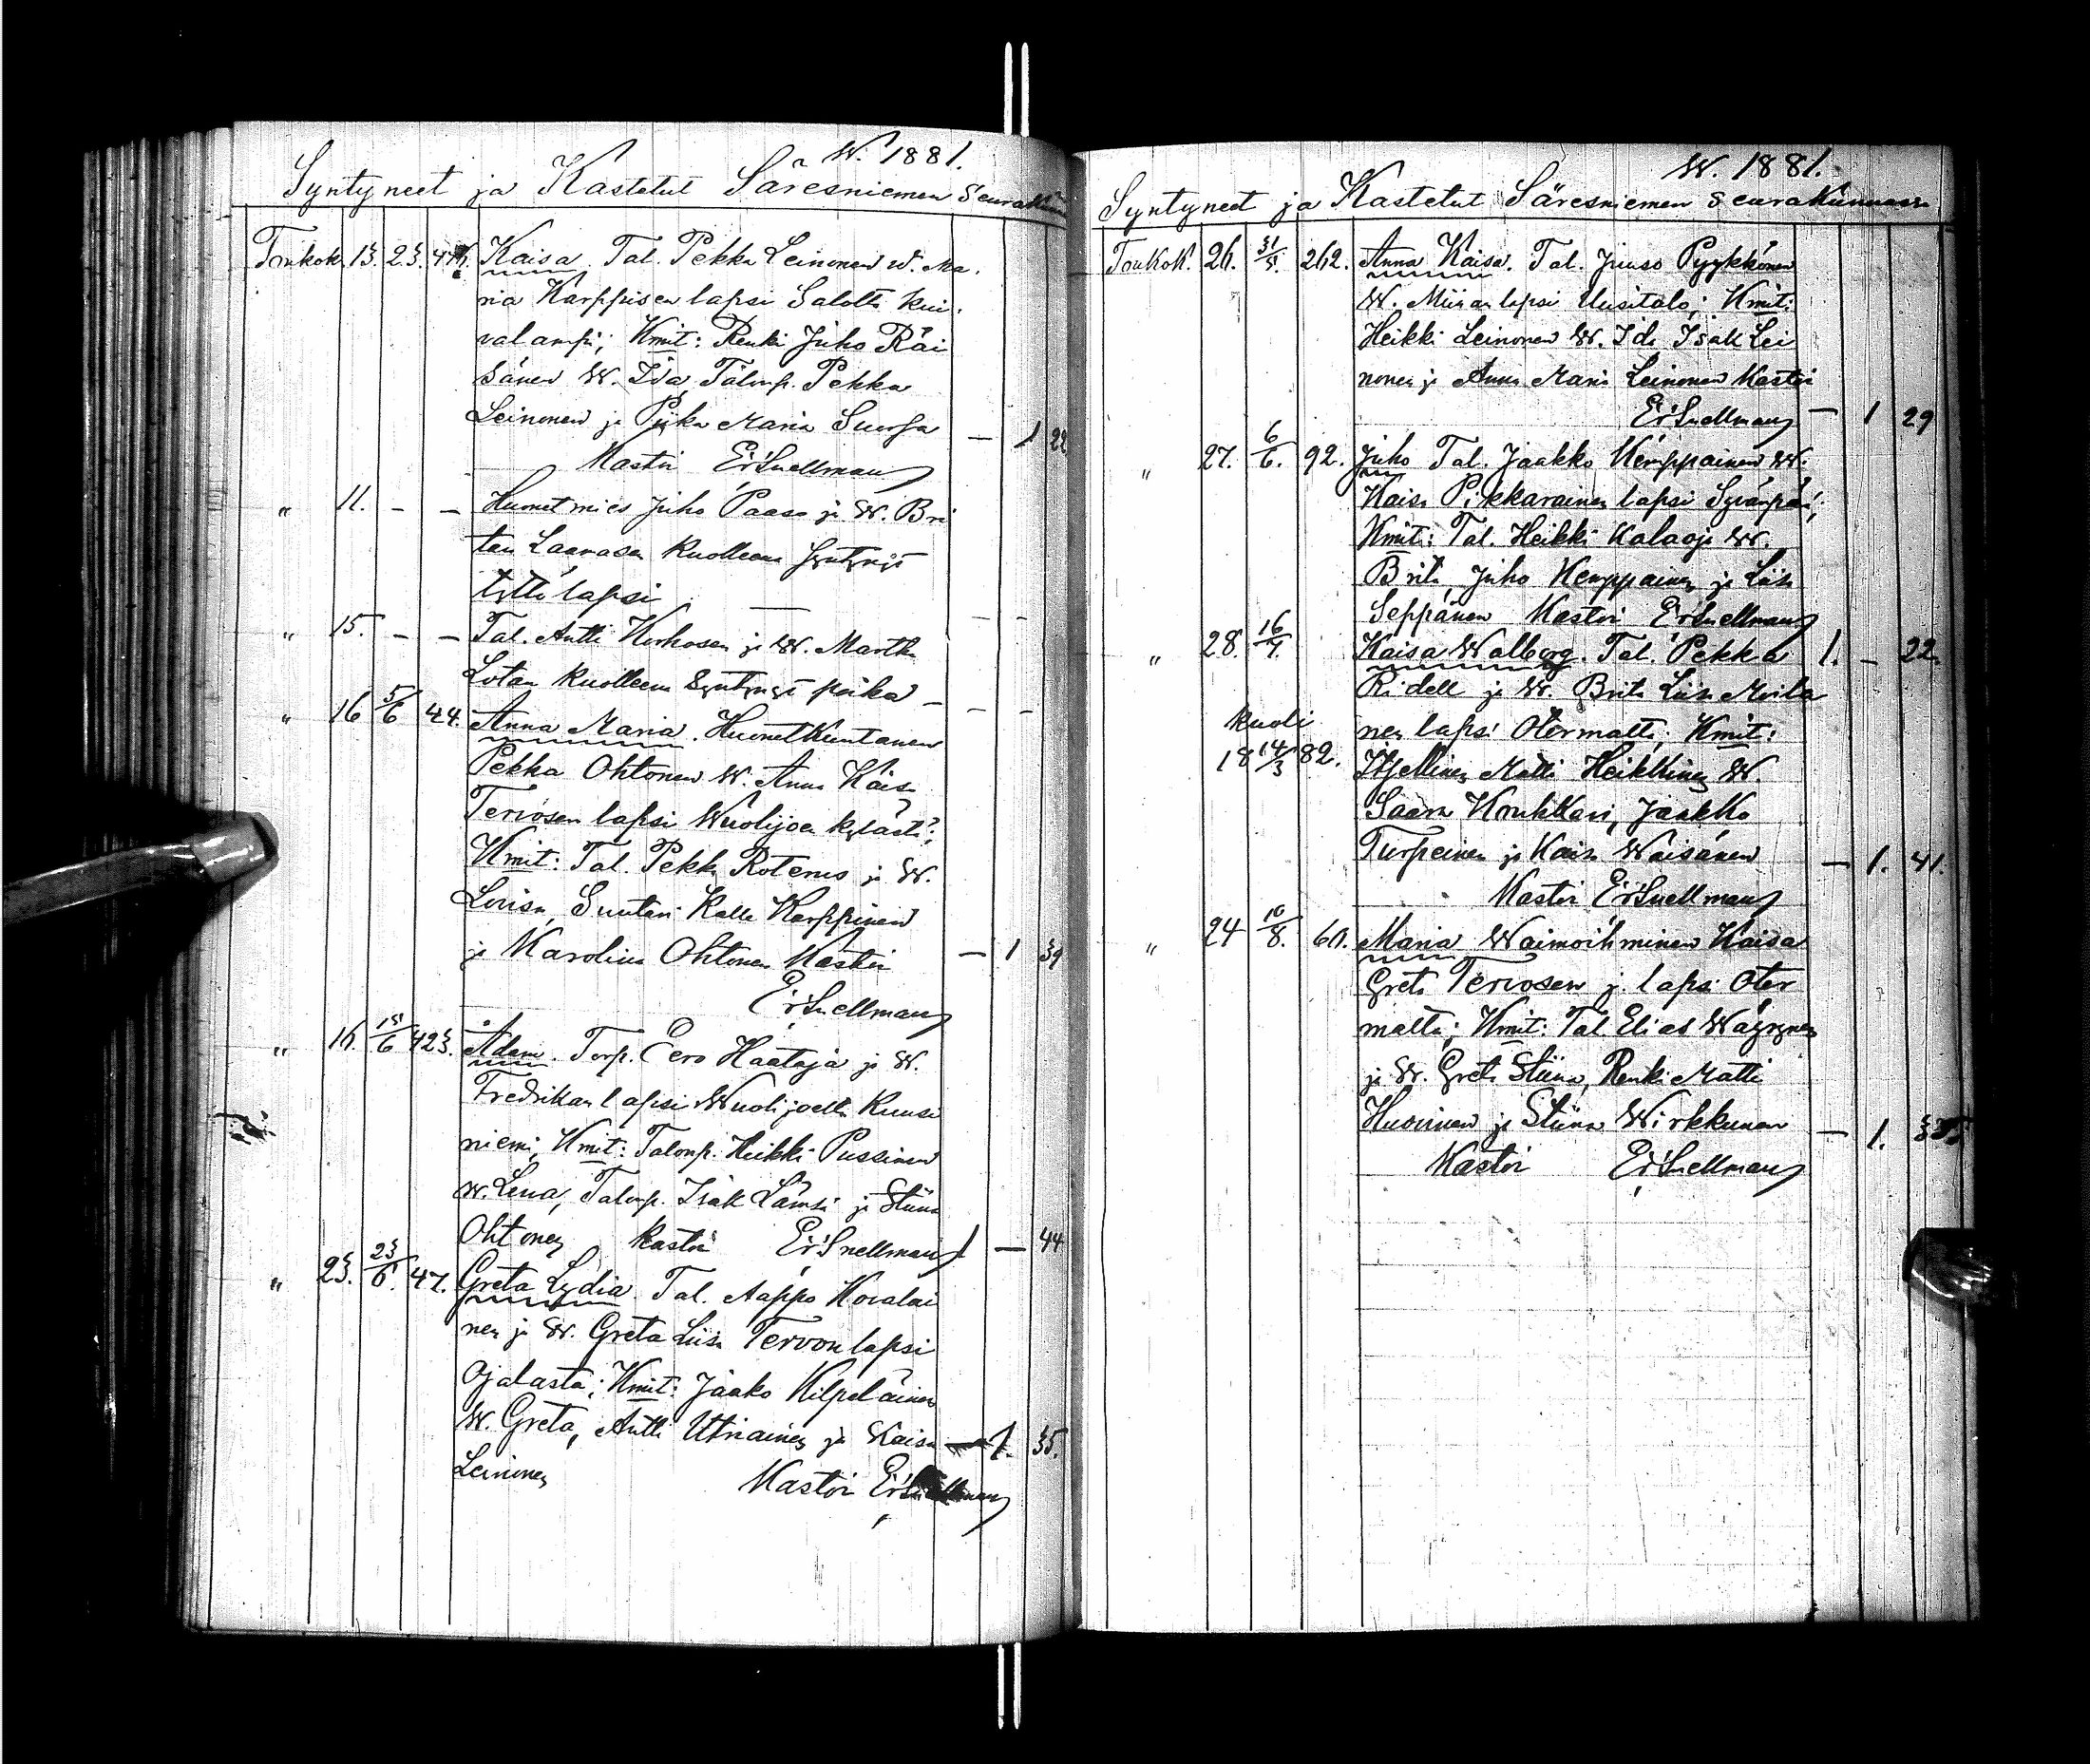 W. 1881.
Syntyneet ja Kastetut Säresniemen Seurakun
Toukok. 13. 23. Kaisa. Tal. Pekka Leinonen W. Ma
ria Karppisen lapsi Salolta Kui
valampi; Kmit: Renki Juho Räi
sänen W. Ida, Talonp. Pekka
Leinonen ja Piika Maria Suorsa — 1 22
Kastoi Er. Snellman
" 11. - - Huonetmies Juho Paaso ja W. Bri
tan Laavasen Kuolleena Syntynyt
tyttö lapsi — - -
" 15. - - Tal. Antti Korhosen ja W. Martha
Lotan Kuolleena Syntynyt poika - - -
" 16 5/6 44. Anna Maria. Huonetkuntanen
Pekka Ohtonen W. Anna Kaisa
Tervosen lapsi Wuolijoen kylästä;
Kmit: Tal. Pekka Rotenus ja W.
Lovisa, Suutari Kalle Karppinen
ja Karolina Ohtonen Kastoi — 1 39
Er. Snellman
" 16. 15/6 423. Adam. Torp. Eero Haataja ja W.
Fredrikan lapsi Wuolijoelta Kuusi
niemi, Kmit: Talonp. Heikki Pussinen
W. Lena, Talonp. Isak Lämsä ja Stiina
Ohtonen kastoi Er. Snellman 1 — 44
" 23. 23/6. 47. Greta Lydia. Tal. Aappo Kovalai
nen ja W. Greta Liisa Tervon lapsi
Ojalasta; Kmit: Jaako Kilpeläinen
W. Greta, Antti Utriainen ja Kaisa — 1. 35.
Leinonen Kastoi Er. Snellman
W. 1881.
Syntyneet ja Kastetut Säresniemen Seurakunnassa
Toukok. 26. 31/5. 262. Anna Kaisa. Tal. Juuso Pyykkönen
W. Miinan lapsi Uusitalo; Kmit:
Heikki Leinonen W. Ida Isak Lei
nonen ja Anna Maria Leinonen Kastoi
Er. Snellman — 1 29
" 27. 6/6. 92. Juho Tal. Jaakko Kemppainen W.
Kaisa Pikkarainen lapsi Syvänpää;
Kmit: Tal. Heikki Kalaoja W.
Brita, Juho Kemppainen ja Liisa
Seppänen Kastoi Er. Snellman
" 28. 16/7. Kaisa Walborg. Tal. Pekka 1. - 22.
Ridell ja W. Brita Liisa Moila
kuoli nen lapsi Otermalta; Kmit:
18 14/3 82. Itsellinen Matti Heikkinen W.
Saara Koukkari, Jaakko
Turpeinen ja Kaisa Wäisänen — 1. 41.
Kastoi Er. Snellman
" 24 10/8. 60. Maria Waimoihminen Kaisa
Greta Tervosen j. lapsi Oter
malta; Kmit: Tal. Elias Wäyrynen
ja W. Greta Stiina, Renki Matti
Huovinen ja Stiina Wirkkunen — 1.
Kastoi Er. Snellman